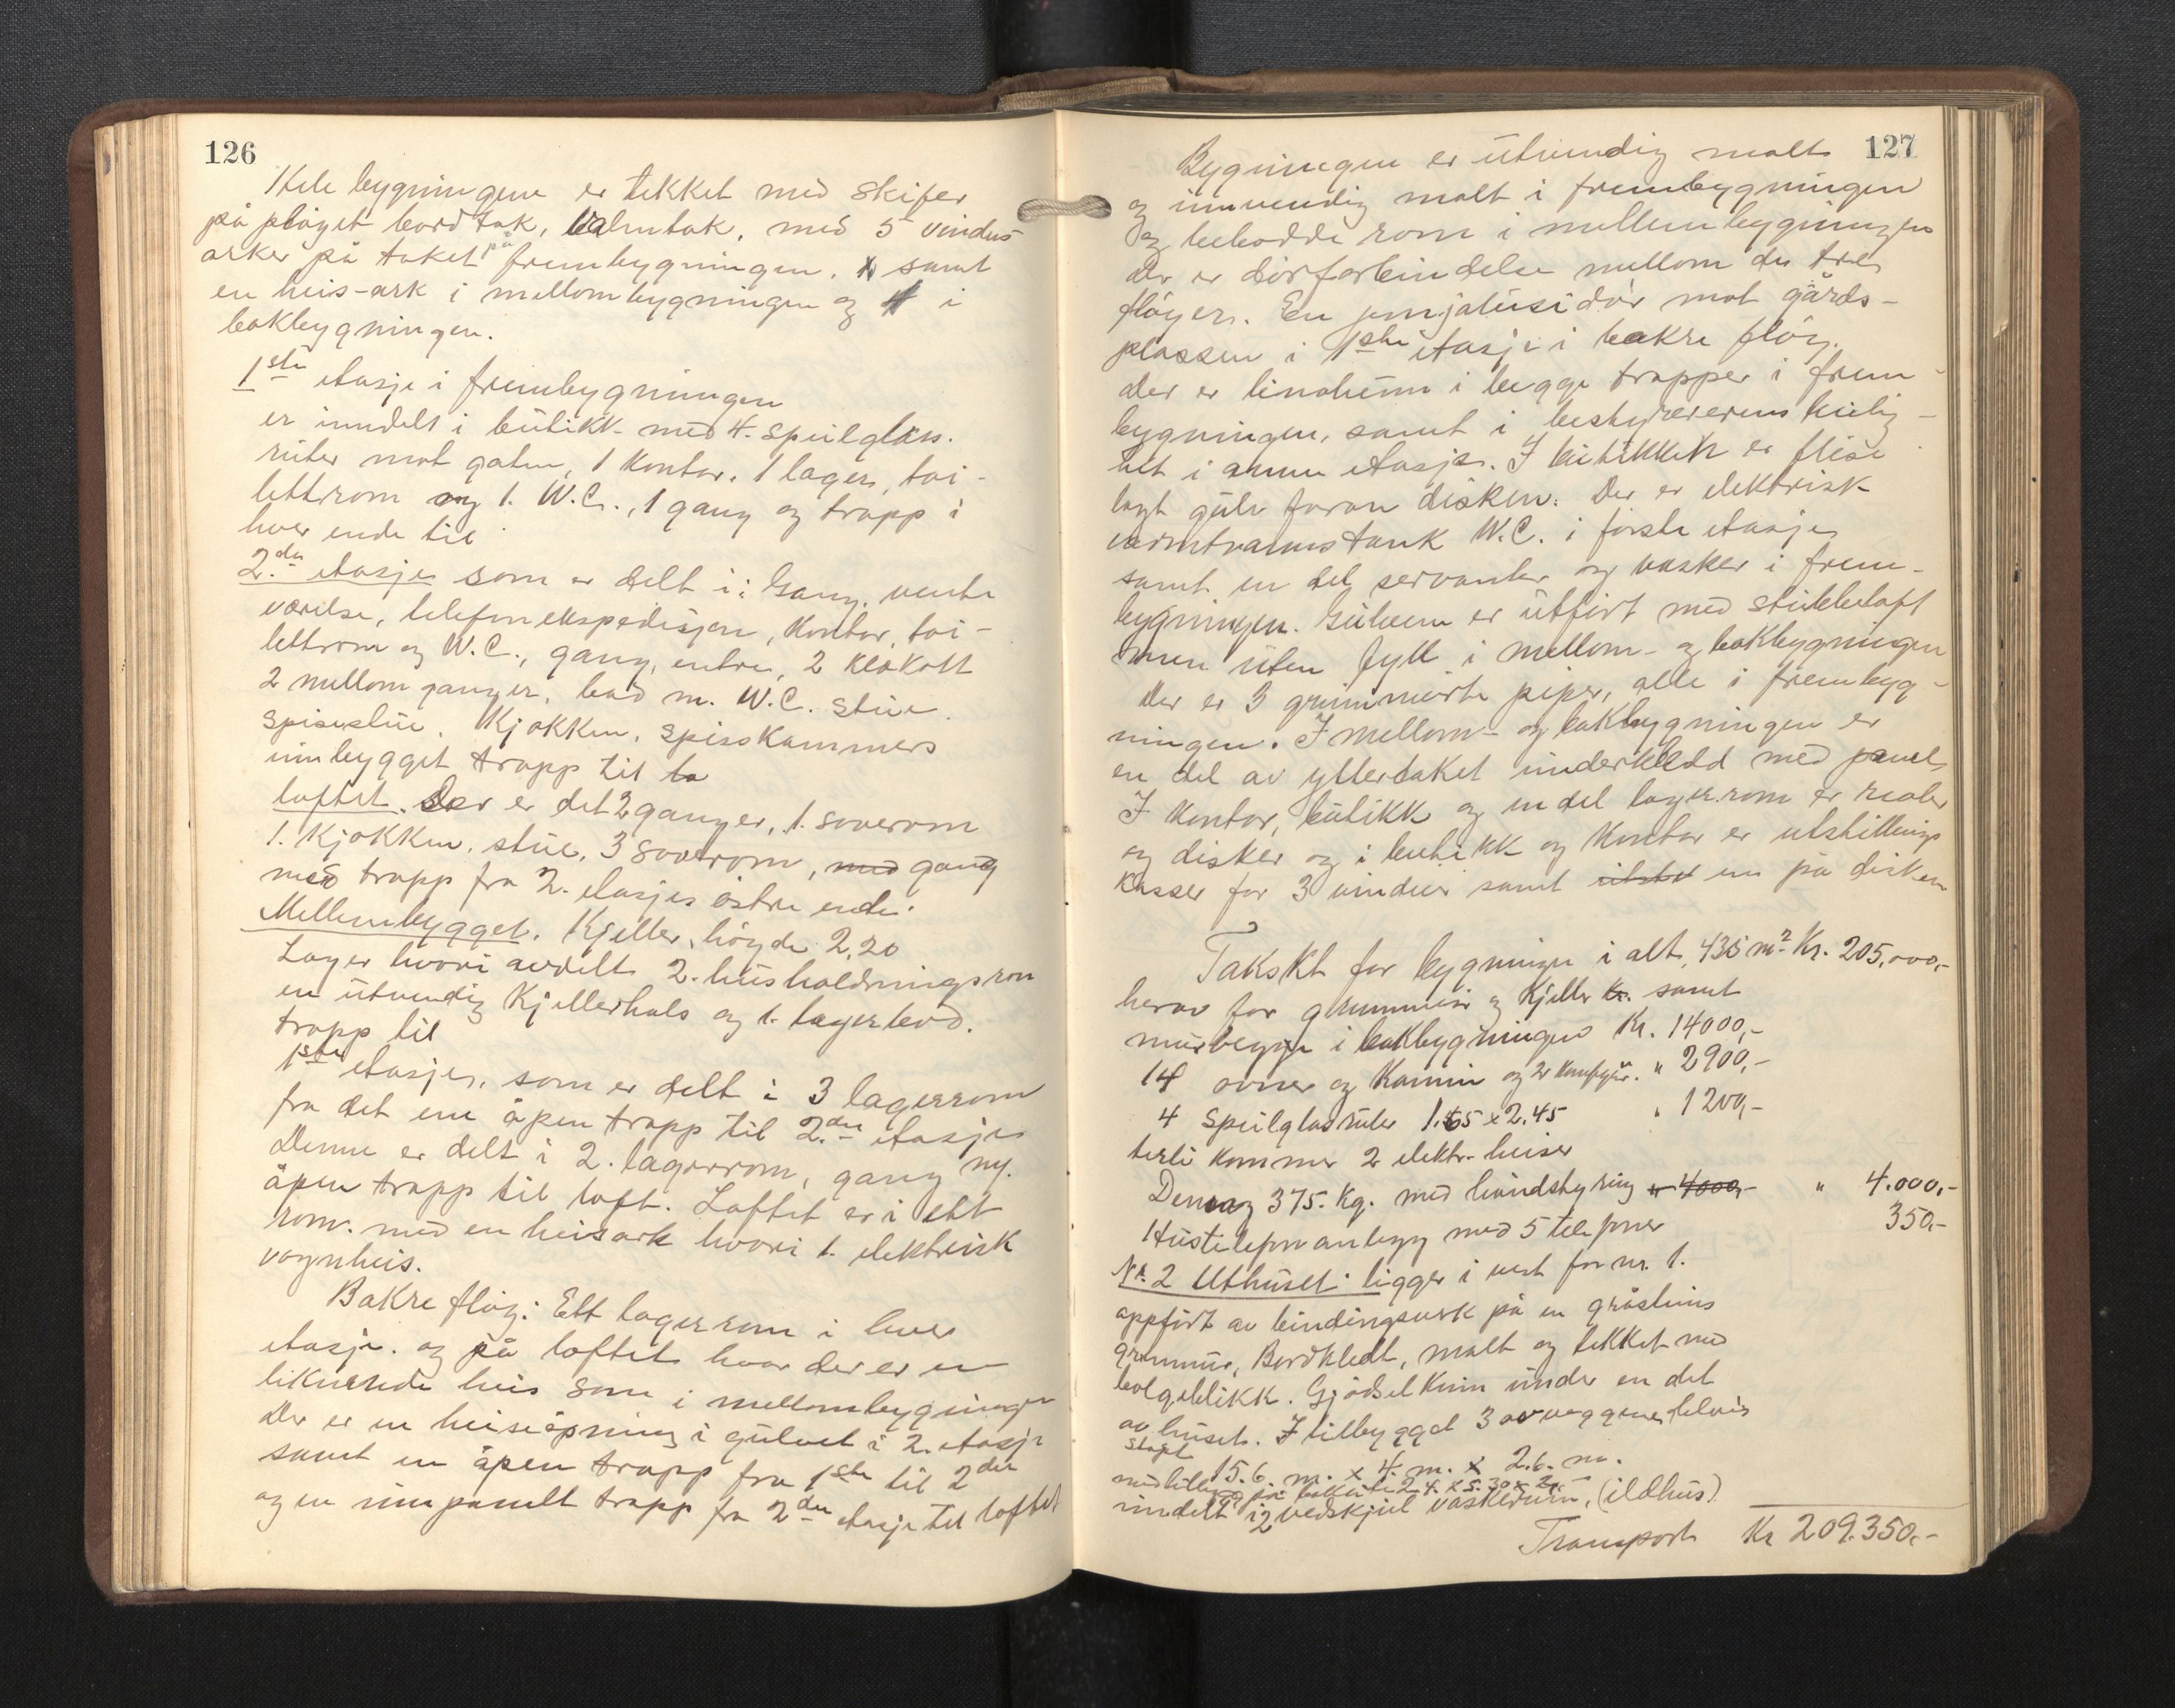 126
Hele bygningen er tekket med skifer
på pløyet bord tak, valmtak, med 5 vindus
arker på taket på frembygningen, samt
en heis-ark i mellombygningen og 1 i
bakbygningen.
1ste etasje i frembygningen
er inndelt i butikk med 4. speilglass.
ruter mot gaten, 1 kontor, 1 lager, toi-
lettrom og 1. W.C., 1 gang og trapp i
hver ende til
2.den etasje som er delt i: Gang, vente
værelse, telefonekspedisjon, kontor, toi-
lettrom og W.C., gang, entre, 2 klokott
2 mellomganger, bad m. W.C. stue
spisestue. Kjøkken, spisskammers
innbygget trapp til to
loftet. Der er det 2 ganger, 1. soverom
1. Kjøkken, stue, 3 soverom, med gang
med trapp fra 2. etasjes østre ende.
Mellembygget. Kjeller, høyde 2,20
Lager hvori avdelt 2. husholdningsrom
en utvendig Kjellerhals og 1. lagerbod.
trapp til
1ste etasje, som er delt i 3 lagerrom
fra det ene åpen trapp til 2.den etasje
Denne er delt i 2. lagerrom, gang og
åpen trapp til loft. Loftet er i ett
rom. med en heisark hvori 1. elektrisk
vognheis.
Bakre fløy: Ett lagerrom i hver
etasje. og på loftet hvor der er en
liknende heis som i mellombygningen
Der er en heiseåpning i gulvet i 2. etasje
samt en åpen trapp fra 1ste til 2den
og en innpanelt trapp fra 2den etasje til loftet
127
Bygningen er utvendig malt
og innvendig malt i frembygningen
og bebodde rom i mellembygningen
Der er dørforbindelse mellom de tre
fløyer. En jernjalusidør mot gårds-
plassen i 1ste etasje i bakre fløy.
der er linoleum i begge trapper i frem-
bygningen, samt i bestyrerens leilig-
het i annen etasje. I butikken er flise
lagt gulv foran disken. Der er elektrisk
varmtvannstank W.C. i første etasje
samt en del servanter og vasker i frem-
bygningen. Gulvene er utført med stubbeloft
men uten fyll i mellom- og bakbygningen
Der er 3 grunnmurte piper, alle i frembyg-
ningen. I mellom- og bakbygningen er
en del av yttertaket underkledd med panel
I kontor, butikk og en del lagerrom er reoler
og disker og i butikk og kontor er utstillings
kasser for 3 vinduer samt utstil en på disken
Takst for bygningen i alt, 435 m² Kr. 205.000,-
herav for grunnmur og kjeller kr. samt
murvegge i bakbygningen Kr. 14000,-
14 ovner og Kamin og 2 Komfyr. " 2900,-
4 speilglassruter 1.65 x 2.45 " 1200,-
hertil kommer 2 elektr. heiser
Demag 375. Kg. med håndstyring " 4000,- " 4.000,-
Hustelefonanlegg med 5 telefoner 350,-
Nr. 2 Uthuset: ligger i vest for nr. 1.
oppført av bindingsverk på en gråsteins
grunnmur, Bordkledt, malt og tekket med
bølgeblikk. Gjødselkum under en del
av huset. I tilbygget 3 av veggene delvis
støpt
15.6 m. x 4. m. x 2.6. m.
med tilbygg på baksiden 2.4. x 5.30 x 2.
inndelt i 2 vedskjul vaskerum, (ildhus)
Transport Kr 209.350,-